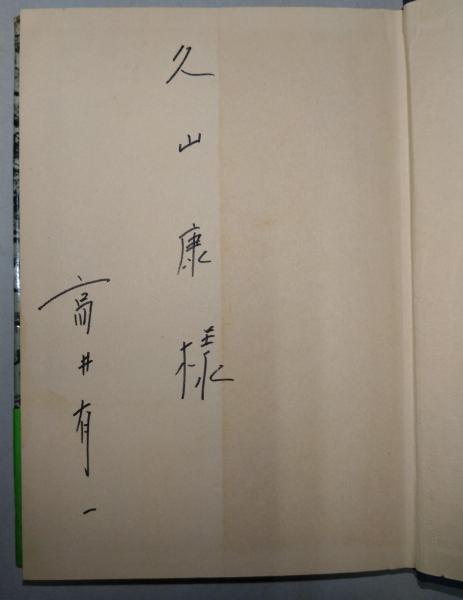 久山康様
高井有一